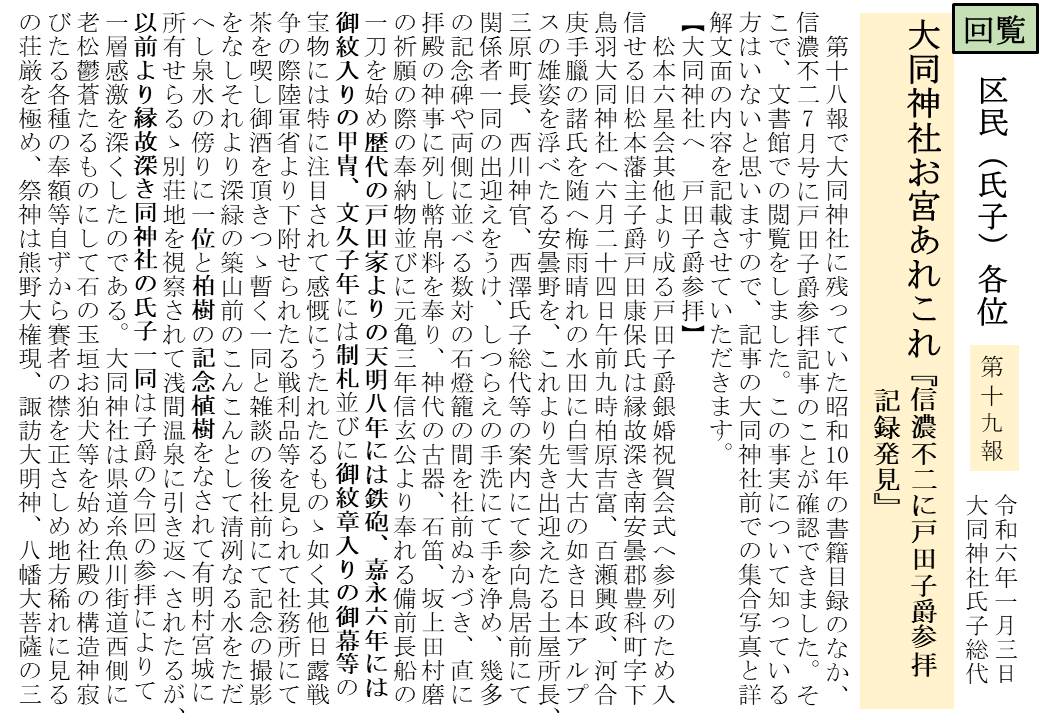 回覧
区民（氏子）各位
第十九報
令和六年一月三日
大同神社氏子総代
大同神社お宮あれこれ『信濃不二に戸田子爵参拝
記録発見』
第十八報で大同神社に残っていた昭和10年の書籍目録のなか、
信濃不二７月号に戸田子爵参拝記事のことが確認できました。そ
こで、文書館での閲覧をしました。この事実について知っている
方はいないと思いますので、記事の大同神社前での集合写真と詳
解文面の内容を記載させていただきます。
【大同神社へ　戸田子爵参拝】
松本六星会其他より成る戸田子爵銀婚祝賀会式へ参列のため入
信せる旧松本藩主子爵戸田康保氏は縁故深き南安曇郡豊科町字下
鳥羽大同神社へ六月二十四日午前九時柏原吉富、百瀬興政、河合
庚手臘の諸氏を随へ梅雨晴れの水田に白雪大古の如き日本アルプ
スの雄姿を浮べたる安曇野を、これより先き出迎えたる土屋所長、
三原町長、西川神官、西澤氏子総代等の案内にて参向鳥居前にて
関係者一同の出迎えをうけ、しつらえの手洗にて手を浄め、幾多
の記念碑や両側に並べる数対の石燈籠の間を社前ぬかづき、直に
拝殿の神事に列し幣帛料を奉り、神代の古器、石笛、坂上田村磨
の祈願の際の奉納物並びに元亀三年信玄公より奉れる備前長船の
一刀を始め歴代の戸田家よりの天明八年には鉄砲、嘉永六年には
御紋入りの甲冑、文久子年には制札並びに御紋章入りの御幕等の
宝物には特に注目されて感慨にうたれたるものゝ如く其他日露戦
争の際陸軍省より下附せられたる戦利品等を見られて社務所にて
茶を喫し御酒を頂きつゝ暫く一同と雑談の後社前にて記念の撮影
をなしそれより深緑の築山前のこんこんとして清冽なる水をただ
へし泉水の傍りに一位と柏樹の記念植樹をなされて有明村宮城に
所有せらるゝ別荘地を視察されて浅間温泉に引き返へされたるが、
以前より縁故深き同神社の氏子一同は子爵の今回の参拝によりて
一層感激を深くしたのである。大同神社は県道糸魚川街道西側に
老松鬱蒼たるものにして石の玉垣お狛犬等を始め社殿の構造神寂
びたる各種の奉額等自ずから賽者の襟を正さしめ地方稀れに見る
の荘厳を極め、祭神は熊野大権現、諏訪大明神、八幡大菩薩の三